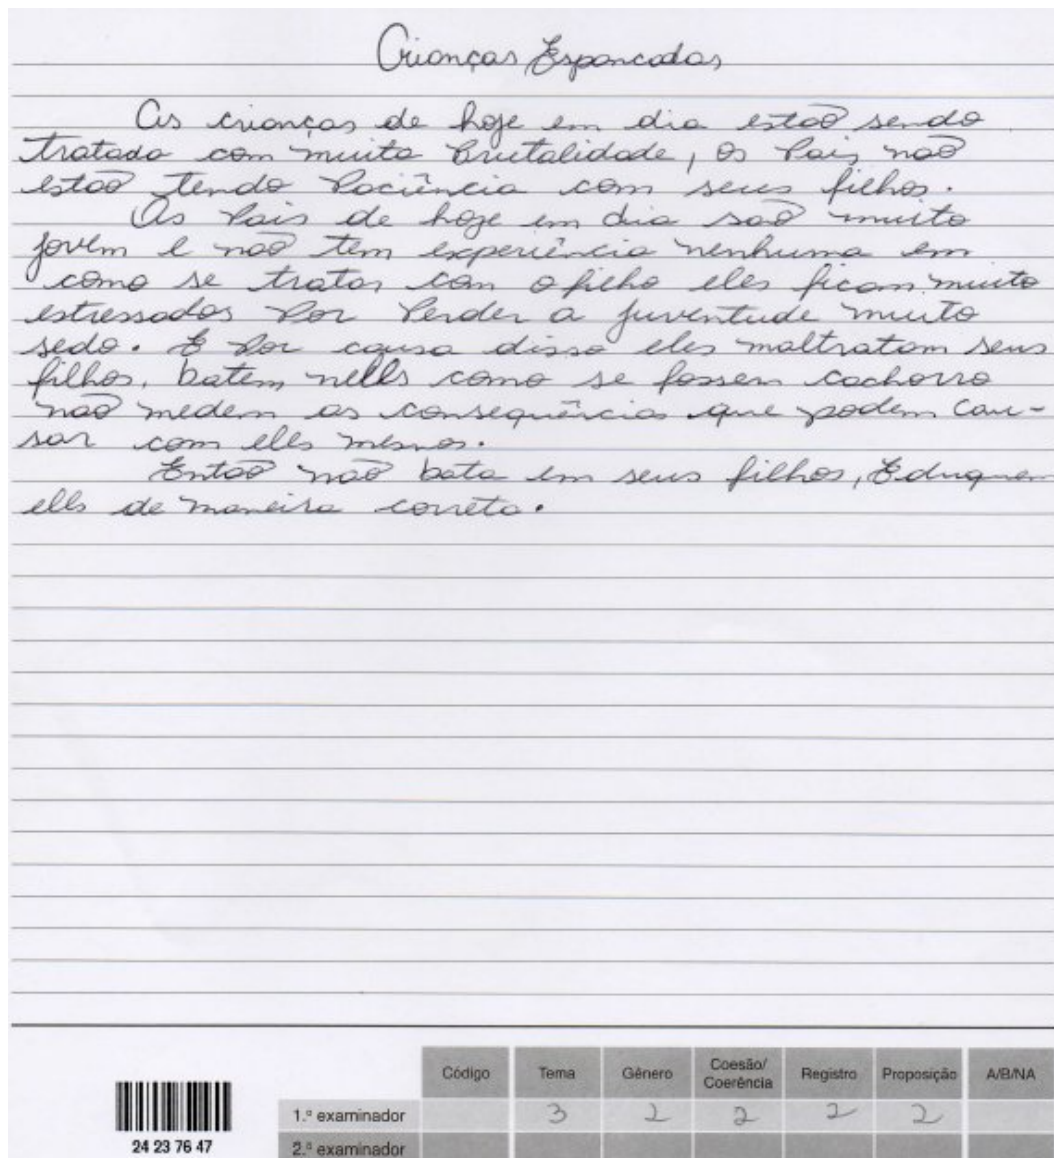 Crianças Espancadas
As crianças de hoje em dia estaõ sendo
tratada com muita Brutalidade, os Pais naõ
estaõ tendo Paciência com seus filhos.
Os Pais de hoje em dia saõ muito
jovem e naõ tem experiência nenhuma em
como se tratar com o filho eles ficam muito
estressados Por Perder a juventude muito
sedo. E Por causa disso eles maltratam seus
filhos, batem nells como se fossem cachorro
naõ medem as consequências que podem cau-
sar com elles mesmos.
Entaõ naõ bata em seus filhos, Eduquem
elles de maneira correta.
Código Tema Gênero Coesão/Coerência Registro Proposição A/B/NA
1.º examinador 3 2 2 2 2
24 23 76 47
2.º examinador